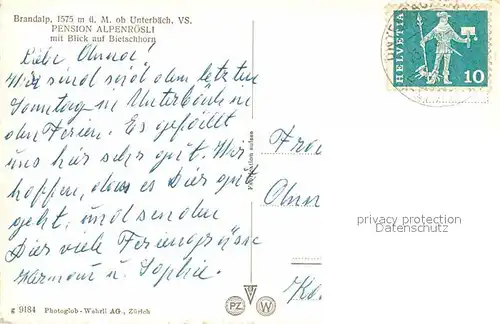 Brandalp, 1575 m ü. M. ob Unterbäch, VS.
PENSION ALPENRÖSLI
mit Blick auf Bietschhorn
Liebe Anna!
Wir sind seit dem letzten
Sonntag in Unterbäch in
den Ferien. Es gefällt
uns hier sehr gut. Wir
hoffen, dass es Dir gut
geht, und senden
Dir viele Feriengrüsse
Hermann u. Sophie.
g 9184 Photoglob-Wehrli AG., Zürich
Production suisse
HELVETIA
10
Fra
Ann
privacy protection
Datenschutz
PZ
W